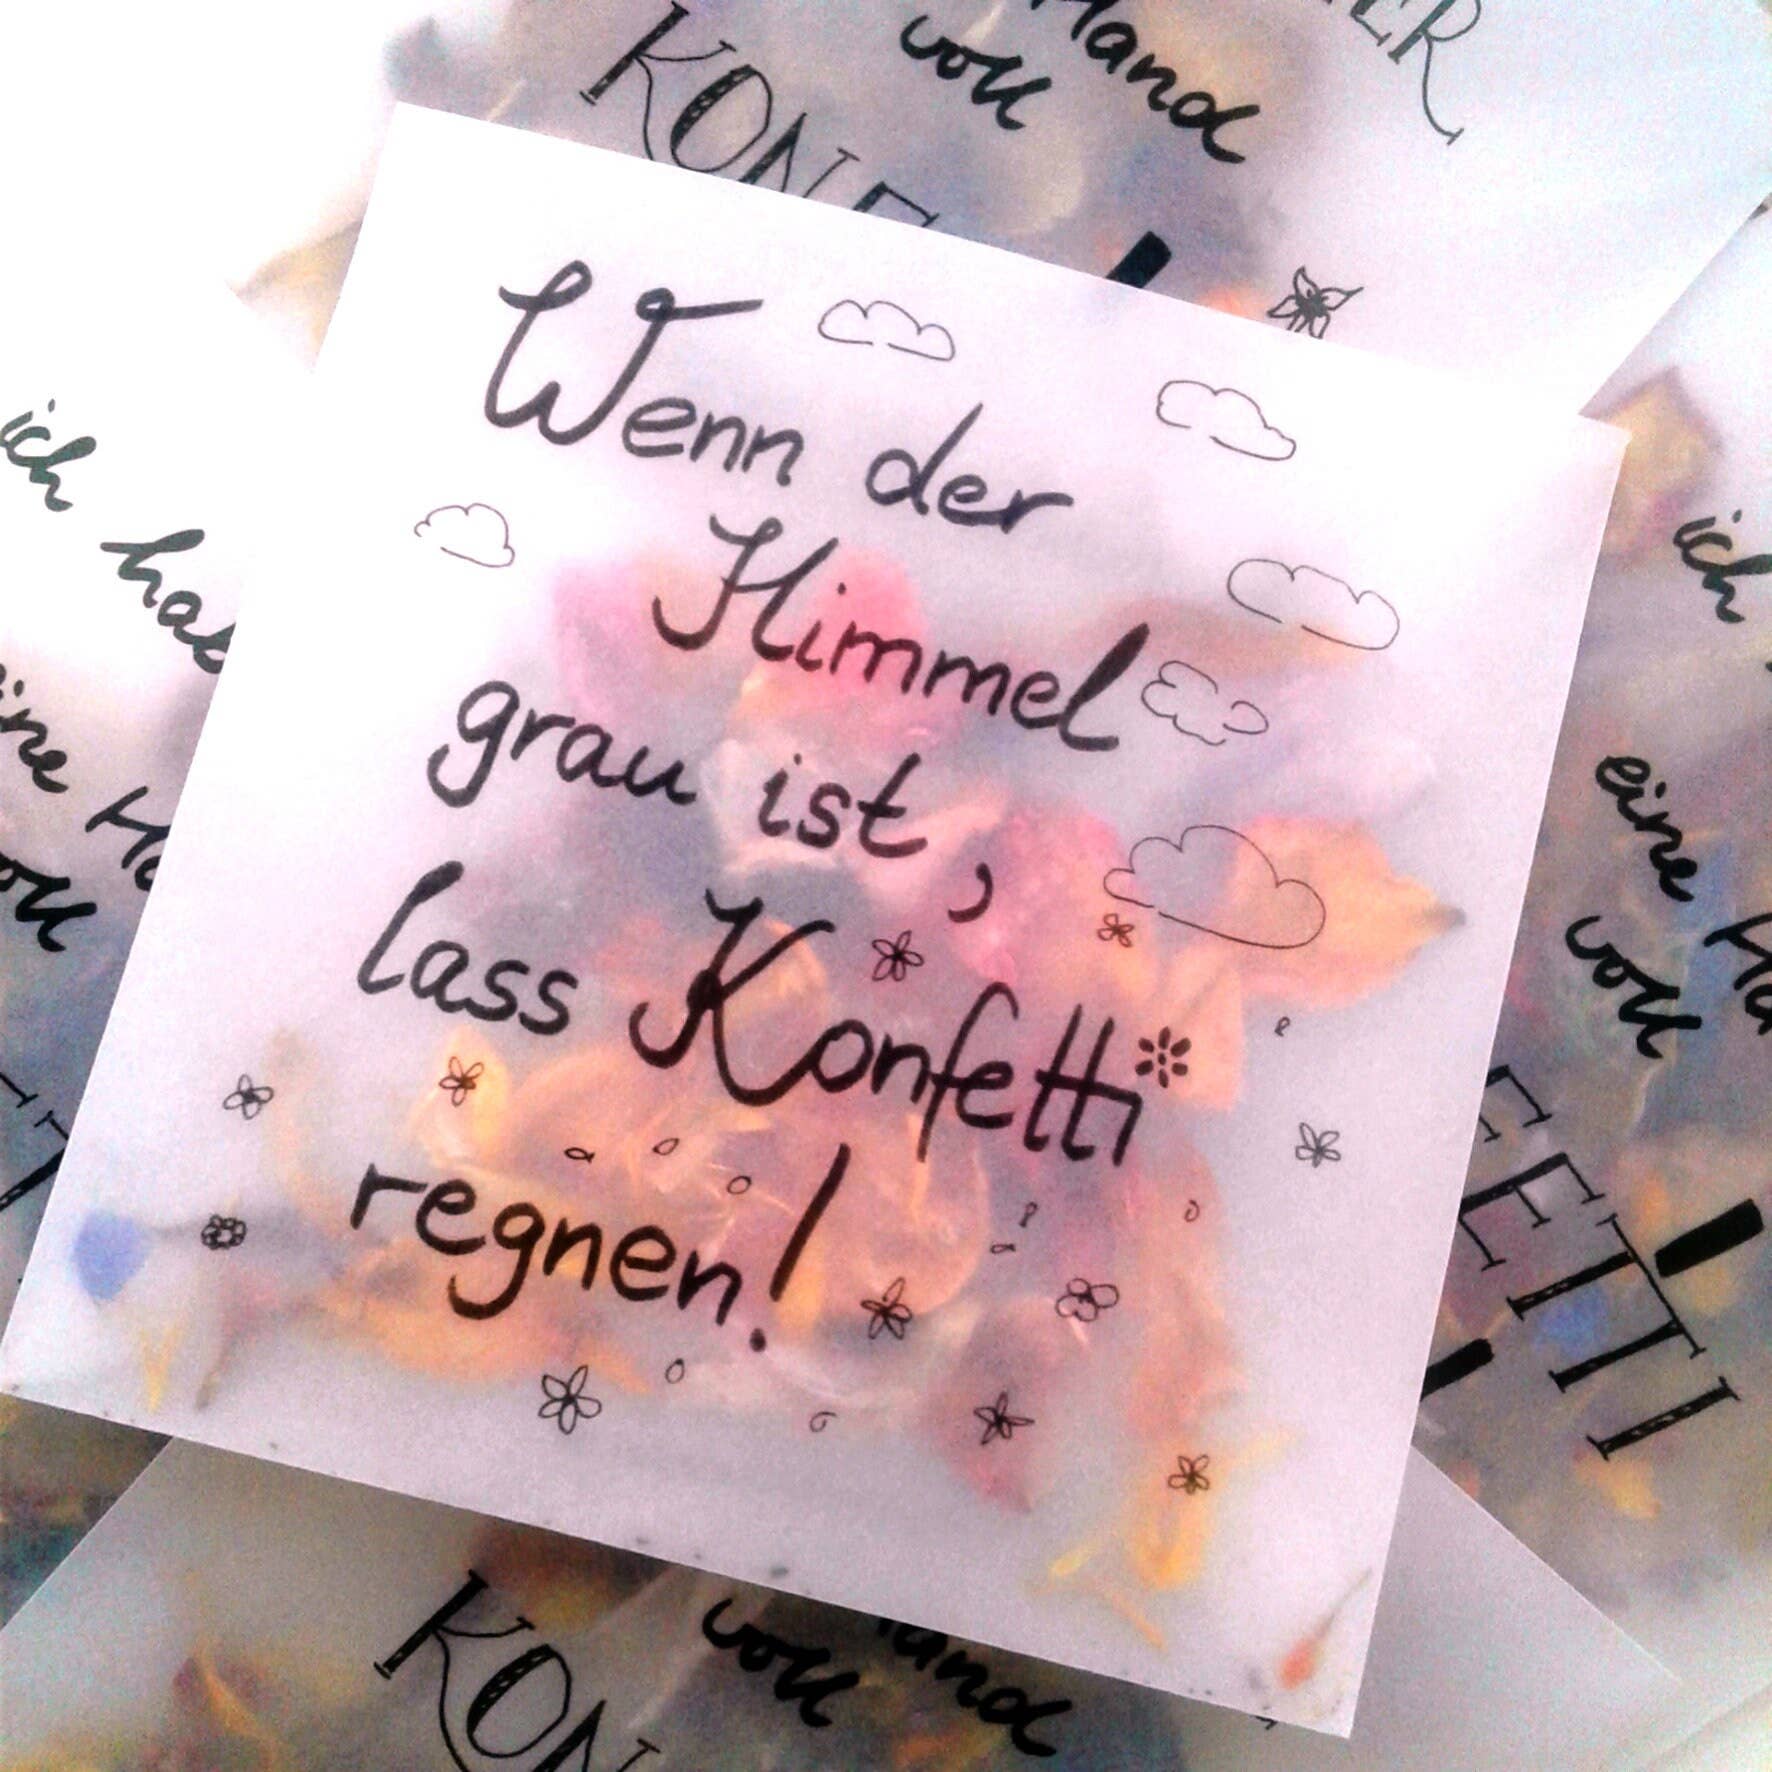 Hand
voll
KONF
!
Wenn der
Himmel
grau ist,
lass Konfetti
regnen!
ich
hab
eine
voll
ich
eine
voll
FETTI
!
KON
voll